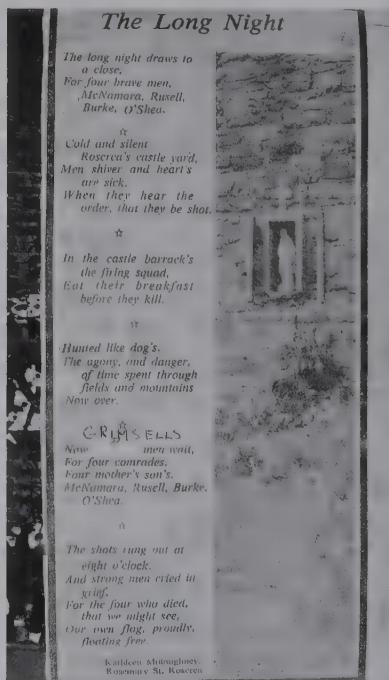 The Long Night
The long night draws to
a close,
For four brave men,
McNamara, Rusell,
Burke, O'Shea.
Cold and silent
Roscrea's castle yard,
Men shiver and heart's
are sick,
When they hear the
order, that they be shot.
In the castle barrack's
the firing squad,
Eat their breakfast
before they kill.
Hunted like dog's.
The agony, and danger,
of time spent through
fields and mountains
Now over.
GRIMSELLS
Now men wait,
For four comrades,
Four mother's son's.
McNamara, Rusell, Burke,
O'Shea.
The shots rung out at
eight o'clock.
And strong men cried in
grief,
For the four who died,
that we might see,
Our own flag, proudly,
floating free.
Kathleen
Rosemary St. Roscrea